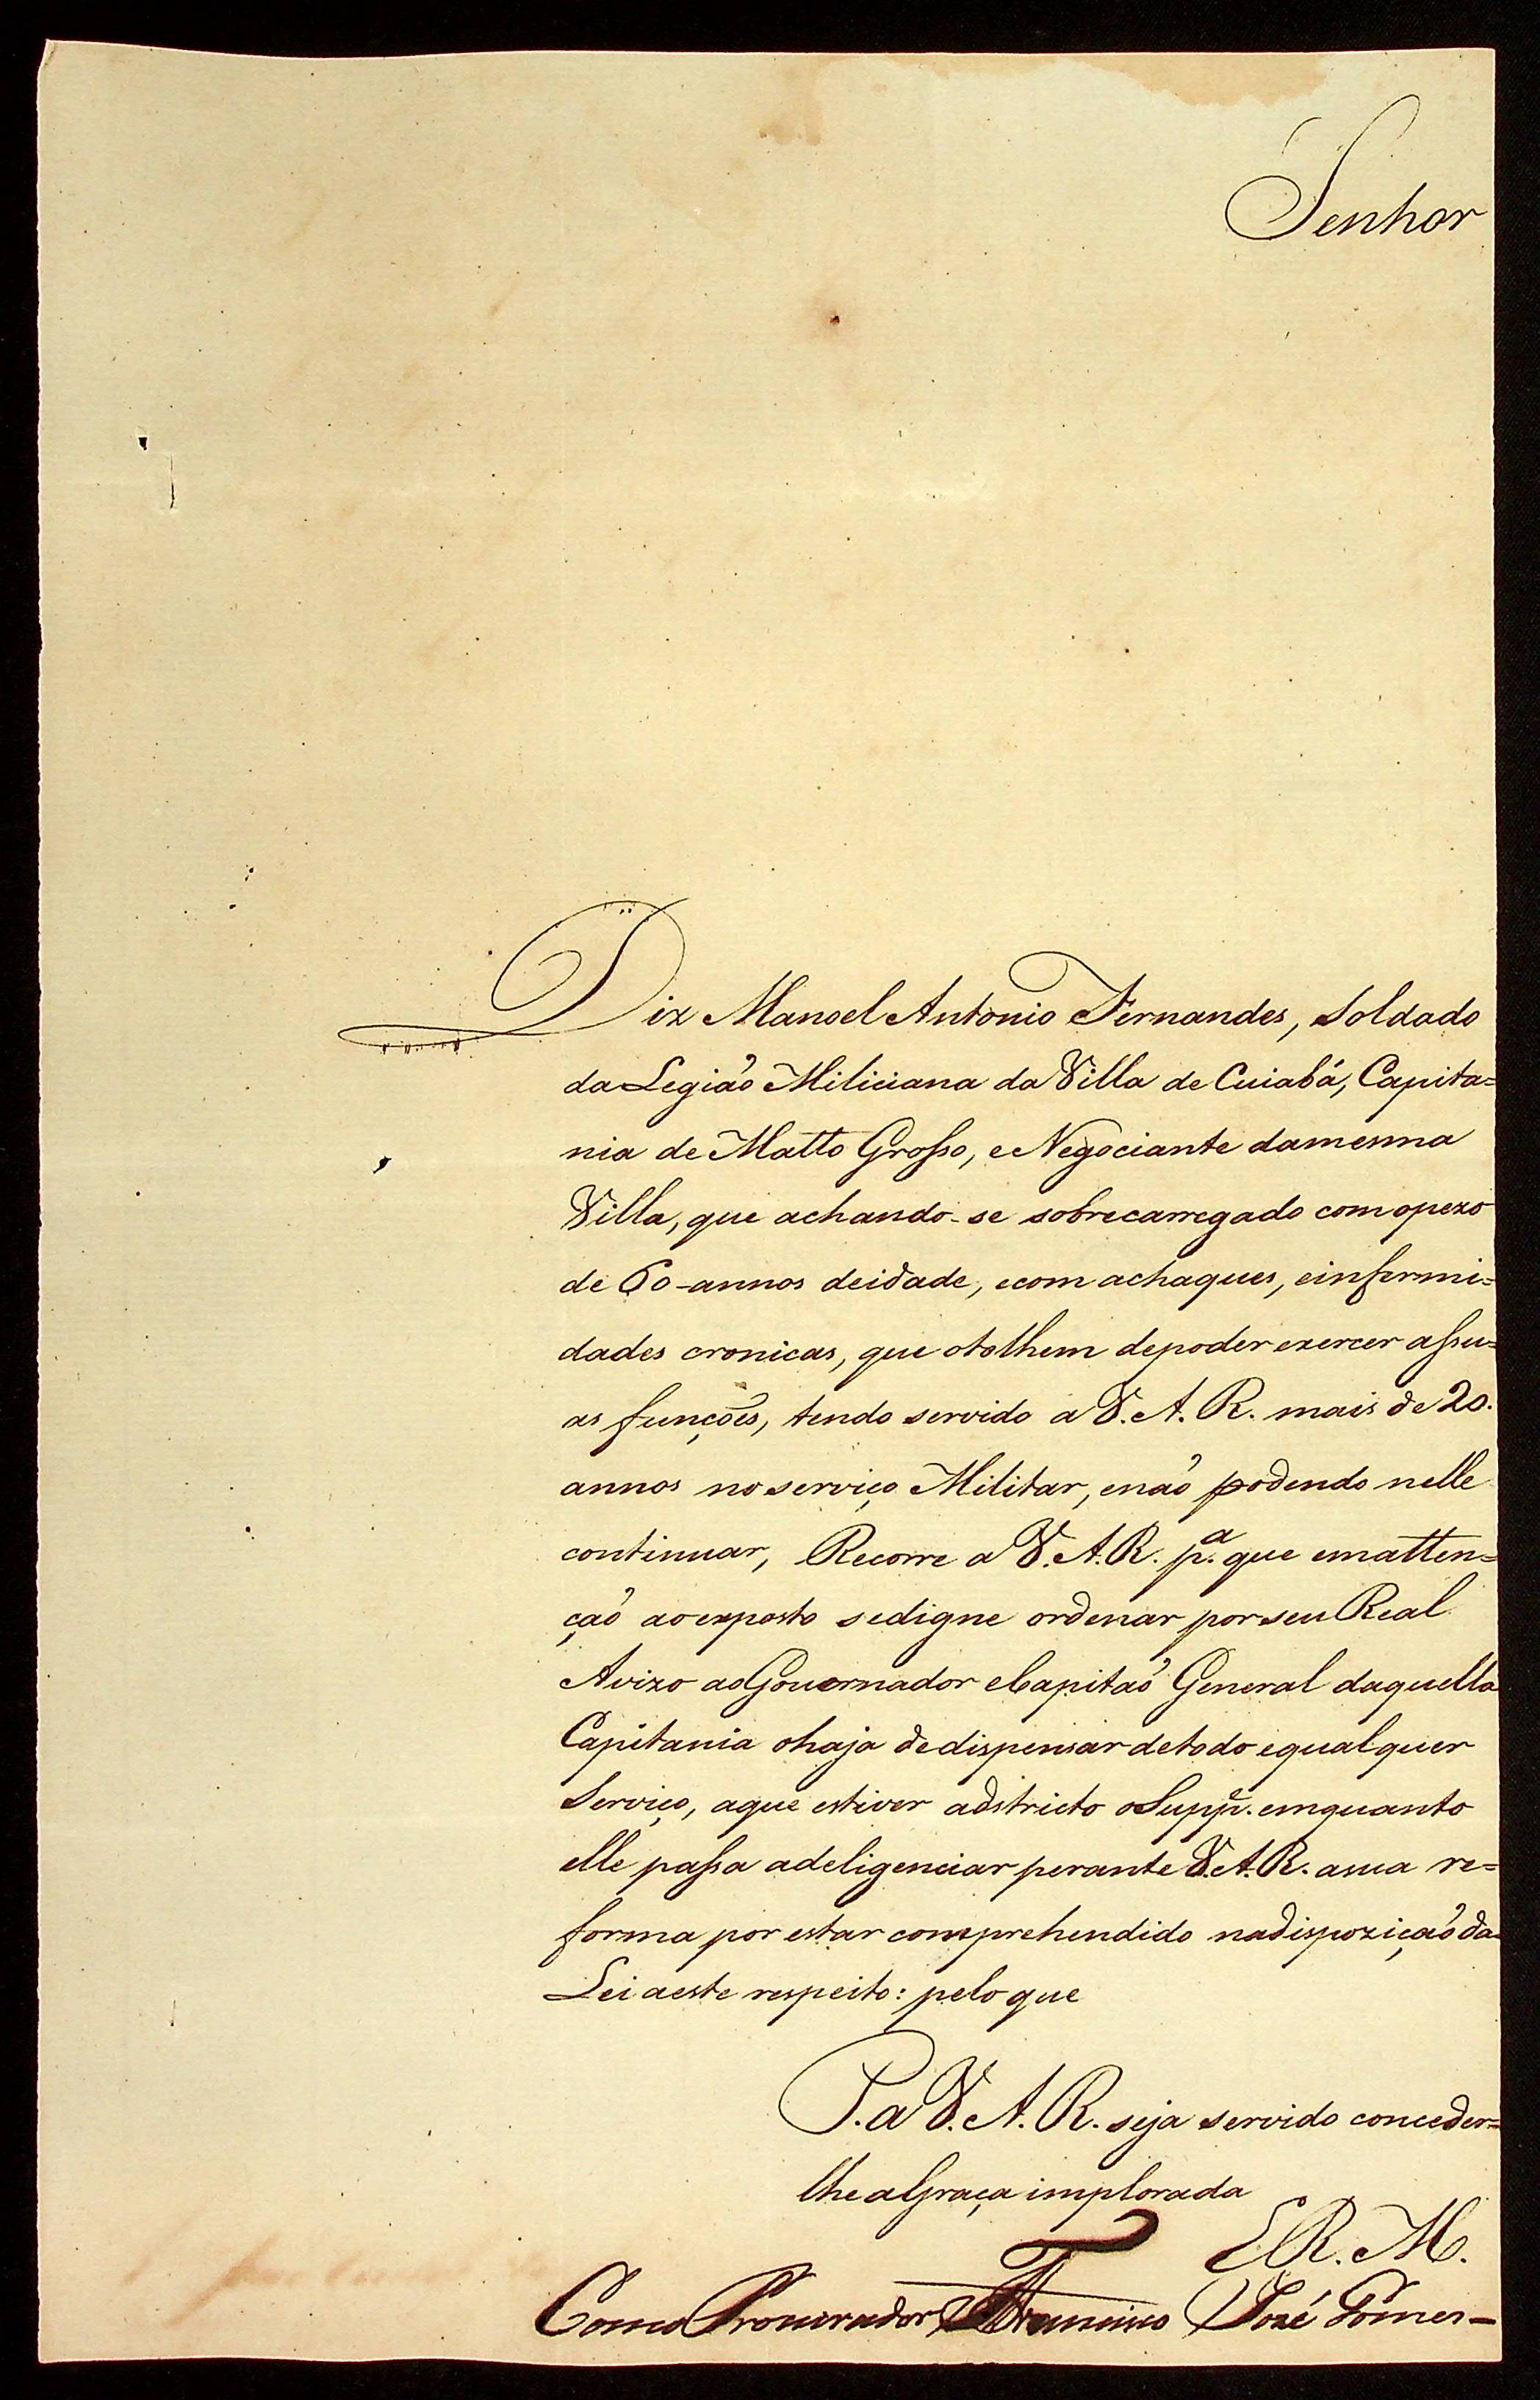 Senhor
Diz Manoel Antonio Fernandes, Soldado
da Legiaõ Miliciana da Villa de Cuiabá, Capita=
nia de Matto Grosso, e Negociante damesma
Villa, que achando-se sobrecarregado comopezo
de 60-annos deidade, ecom achaques, einfermi=
dades cronicas, que otolhem depoder exercer assu=
as funçoẽs, tendo servido a V. A. R. mais de 20.
annos noserviço Militar, enaõ podendo nelle
continuar, Recorre a V. A. R. p.ª que ematten=
çaõ aoexposto sedigne ordenar porseu Real
Avizo aoGovernador eCapitaõ General daquella
Capitania ohaja dedispensar detodo equalquer
Serviço, aque estiver adstricto oSupp.e emquanto
elle passa adeligenciar perante V. A. R. asua re=
forma por estar comprehendido nadispoziçaõ da
Lei aeste respeito: pelo que
P. a V. A. R. seja servido conceder=
lhe aGraça implorada
E R. M.
Como Procurador Francisco José Gomes-